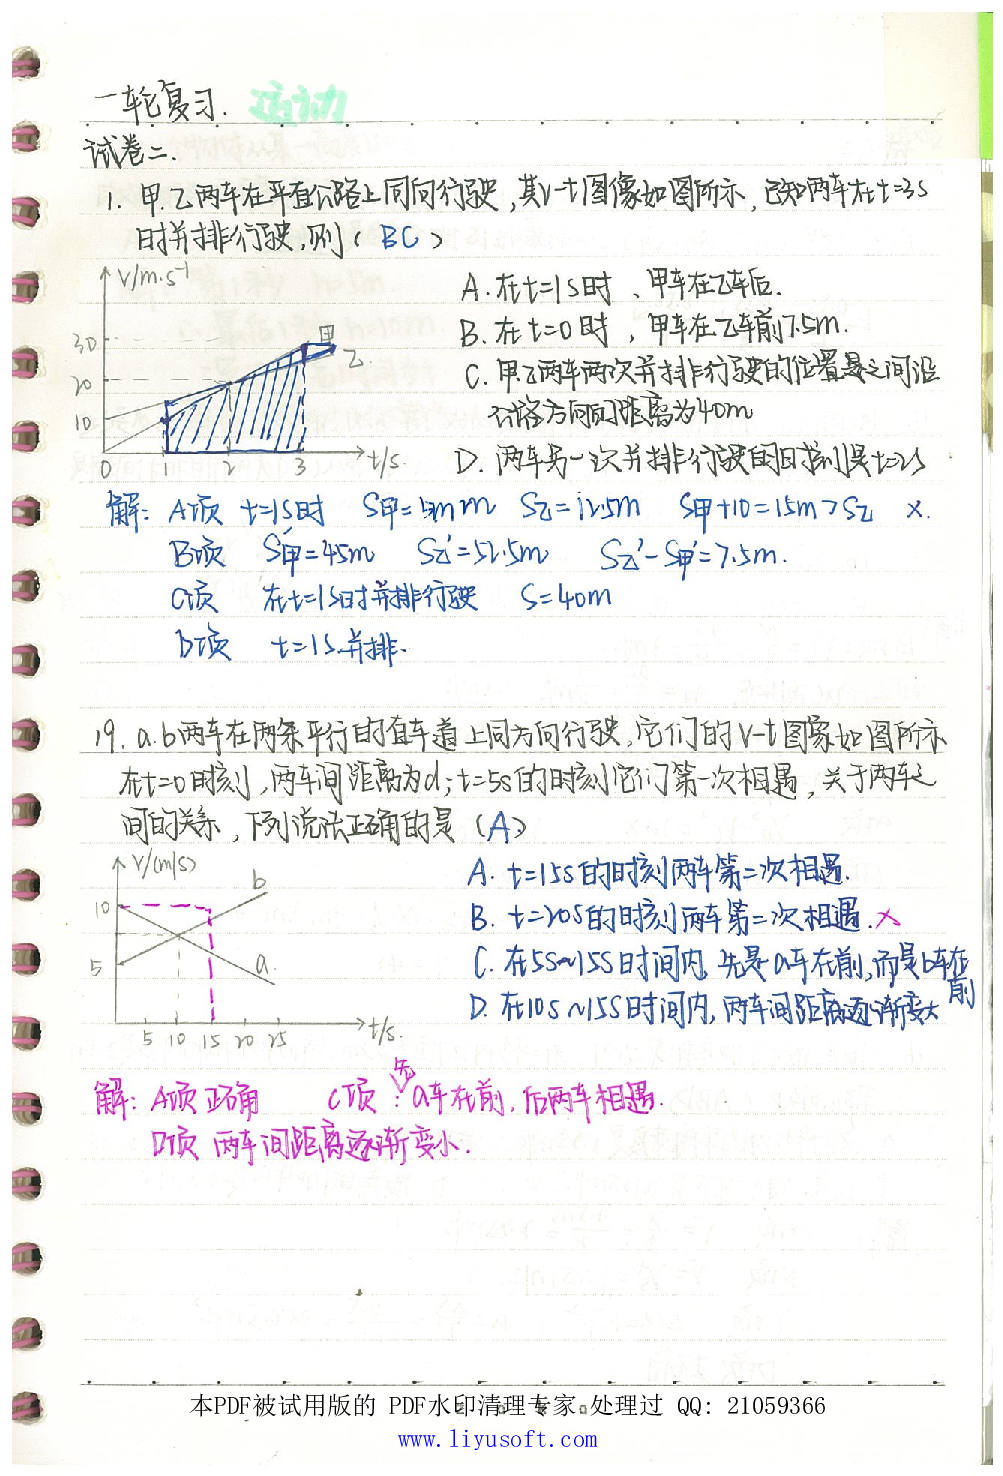 一轮复习. 运动
试卷二.
1. 甲.乙两车在平直公路上同向行驶,其v-t图像如图所示,已知两车在t=3s
时并排行驶,则( BC )
V/m·s⁻¹
30
20
10
0 1 2 3 t/s.
甲
乙.
A.在t=1s时、甲车在乙车后.
B.在t=0时,甲车在乙车前7.5m.
C.甲乙两车两次并排行驶的位置是之间沿
公路方向间距离为40m
D.两车另一次并排行驶的时刻是t=2s
解: A项 t=1s时 S甲= S乙=12.5m S甲+10=15m>S乙 ×.
B项 S甲'=45m S乙'=52.5m S乙'-S甲'=7.5m.
C项 在t=1s时并排行驶 S=40m
D项 t=1s.并排.
19. a.b两车在两条平行的直车道上同方向行驶,它们的V-t图象如图所示
在t=0时刻,两车间距离为d;t=5s的时刻它们第一次相遇,关于两车之
间的关系,下列说法正确的是(A)
V/(m/s)
10
5
b
a.
5 10 15 20 25 t/s.
A. t=15s的时刻两车第二次相遇.
B. t=20s的时刻两车第二次相遇.×
C. 在5s~15s时间内,先是a车在前,而是b车在
前
D. 在10s~15s时间内,两车间距离逐渐变大
解: A项正确 C项:先a车在前,后两车相遇.
D项 两车间距离逐渐变小.
本PDF被试用版的 PDF水印清理专家 处理过 QQ: 21059366
www.liyusoft.com